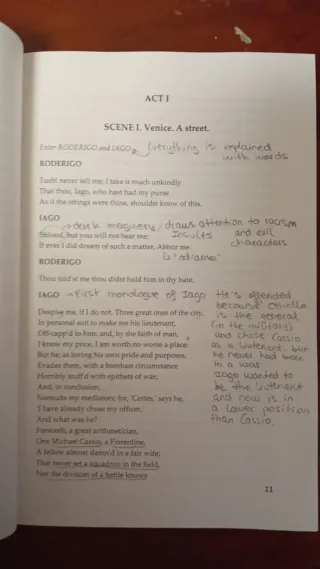 ACT I
SCENE I. Venice. A street.
Enter RODERIGO and IAGO → Everything is explained
with words
RODERIGO
Tush! never tell me; I take it much unkindly
That thou, Iago, who hast had my purse
As if the strings were thine, shouldst know of this.
IAGO → dark imaginery / draws attention to racism
'Sblood, but you will not hear me: Insults and evil
If ever I did dream of such a matter, Abhor me. characters
RODERIGO
Thou told'st me thou didst hold him in thy hate.
IAGO → First monologue of Iago He's offended
because Othello
Despise me, if I do not. Three great ones of the city, is the general
In personal suit to make me his lieutenant, (in the military)
Off-capp'd to him: and, by the faith of man, and chose Cassio
I know my price, I am worth no worse a place: as a lutenant, but
But he; as loving his own pride and purposes, he never had been
Evades them, with a bombast circumstance in a war
Horribly stuff'd with epithets of war; Iago wanted to
And, in conclusion, be the lutenant
Nonsuits my mediators; for, 'Certes,' says he, and now is in
'I have already chose my officer.' a lower position
And what was he? than Cassio.
Forsooth, a great arithmetician,
One Michael Cassio, a Florentine,
A fellow almost damn'd in a fair wife;
That never set a squadron in the field,
Nor the division of a battle knows
11